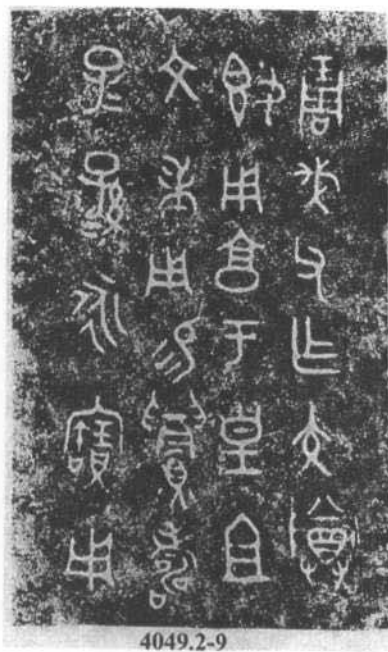 琱伐父乍交尊
𣪘用亯于皇且
文考用易眉壽
子孫永寶用
4049.2-9